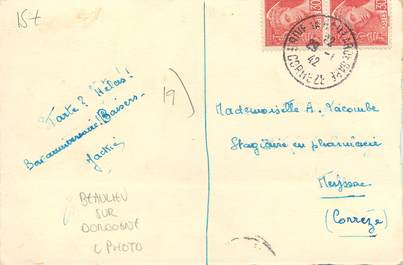 15t
19)
Tarte? Hélas!
Bon anniversaire! Baisers.
Jackie
BEAULIEU
SUR
DORDOGNE
CPHOTO
42
CORREZE
Mademoiselle A. Lacombe
Stagiaire en pharmacie
Meyssac
(Corrèze)